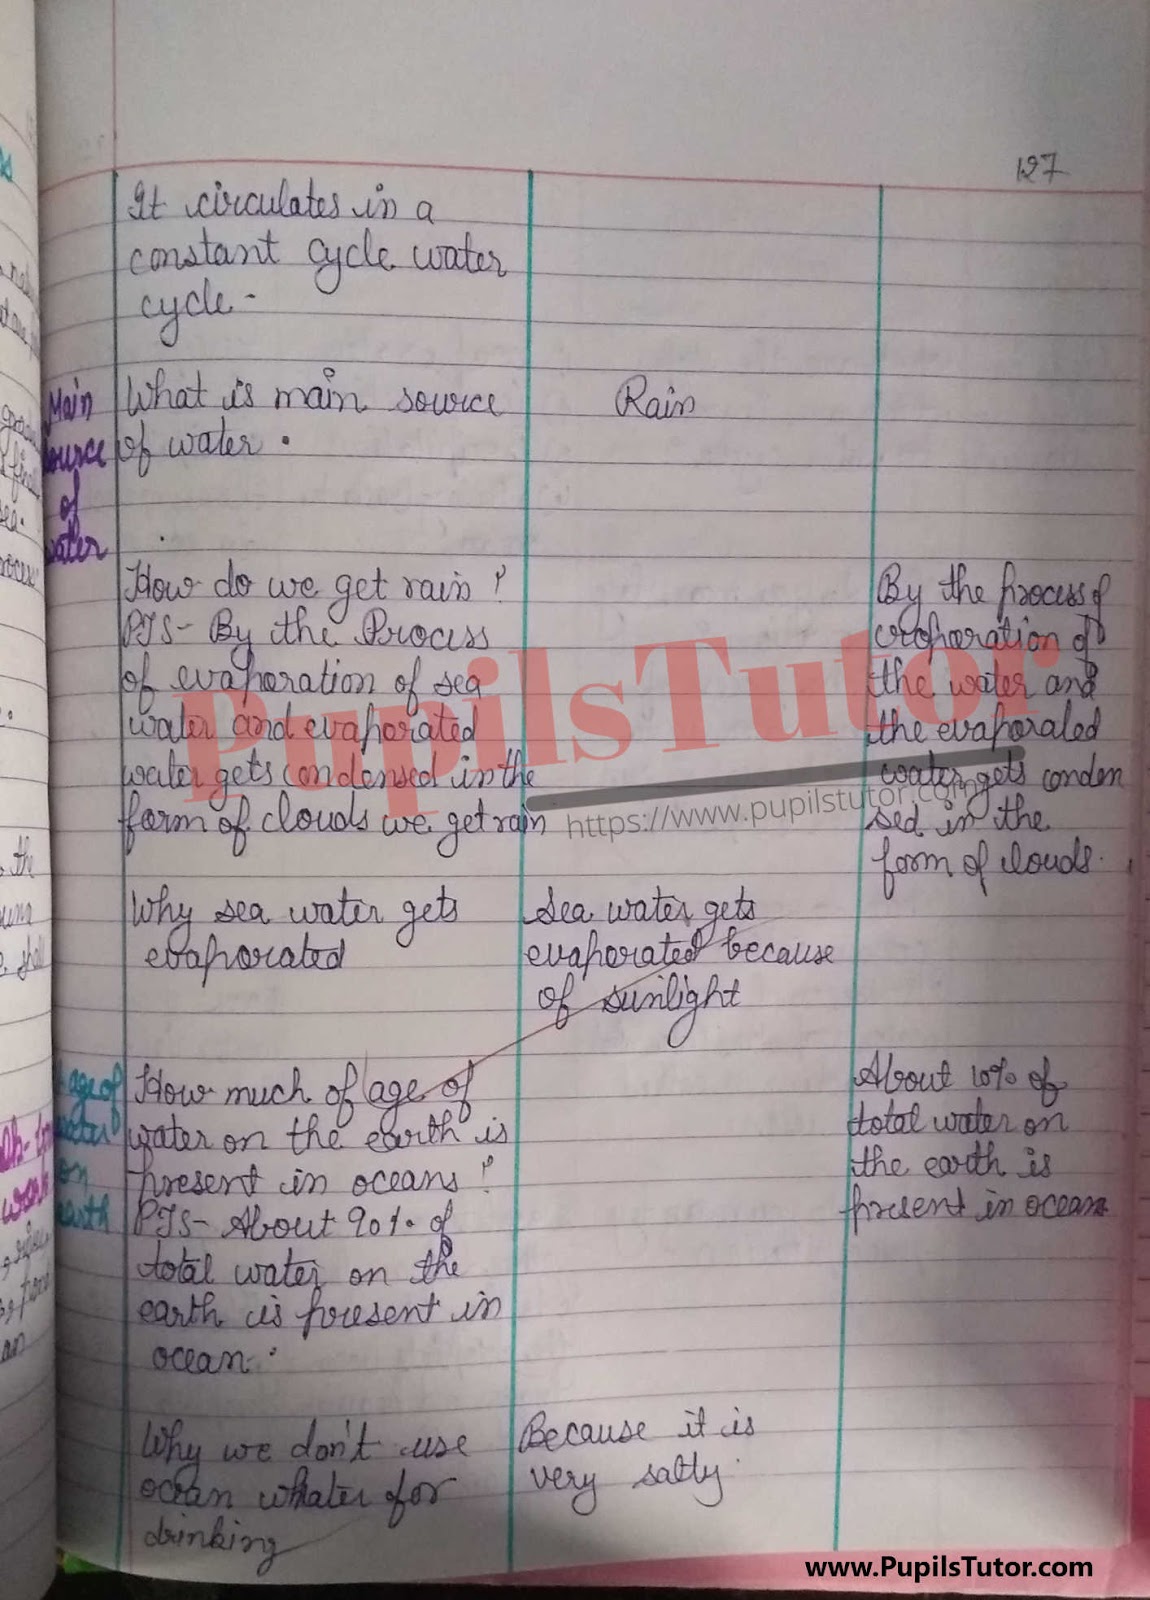 127
It circulates in a
constant cycle water
cycle -
Main
source
of
water
What is main source
of water .
Rain
How do we get rain ?
PTS - By the Process
of evaporation of sea
water and evaporated
water gets condensed in the
form of clouds we get rain
By the process of
evoporation of
the water and
the evaporated
water gets conden
sed in the
form of clouds.
Why sea water gets
evaporated
Sea water gets
evaporated because
of sunlight
age of
water
on
earth
How much of age of
water on the earth is
present in oceans ?
PTS - About 90% of
total water on the
earth is present in
ocean.
About 10% of
total water on
the earth is
present in ocean
Why we don't use
ocean whater for
drinking
Because it is
very salty.
PupilsTutor
https://www.pupilstutor.com
www.PupilsTutor.com